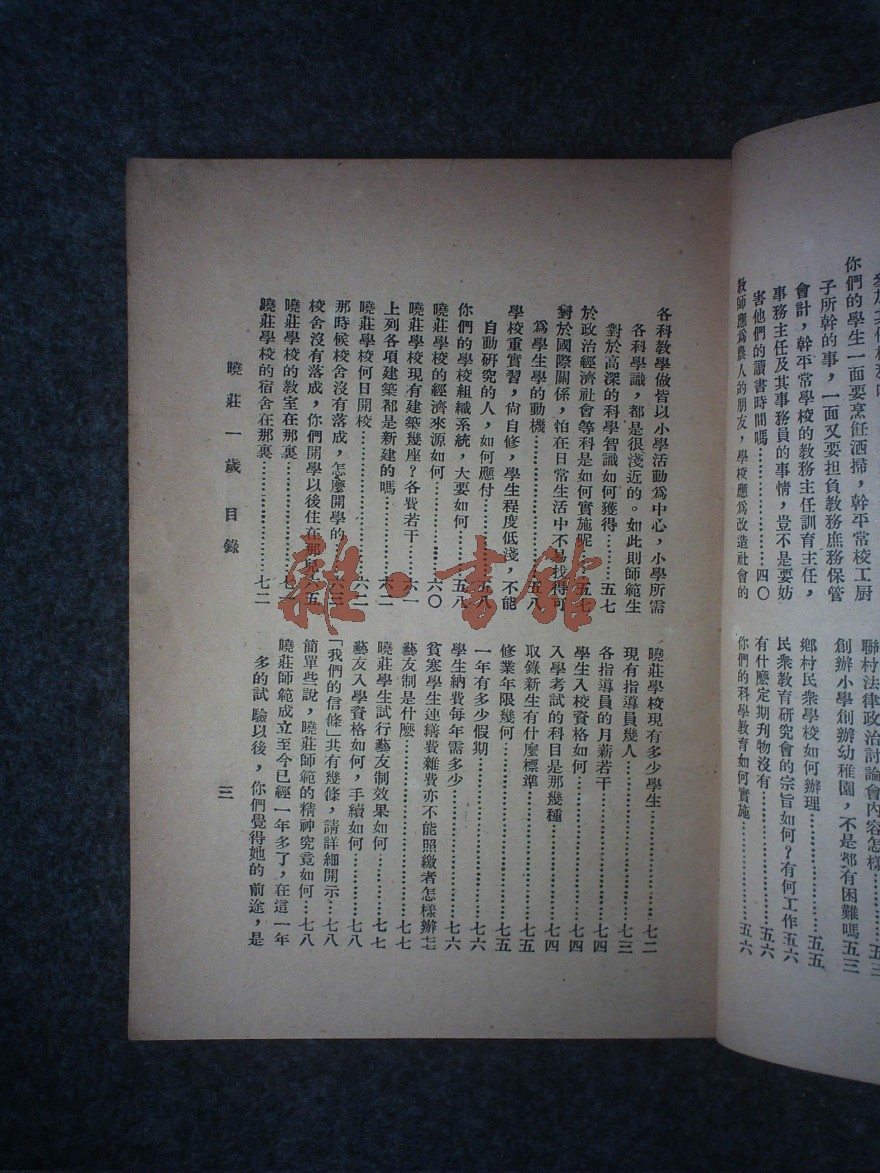 你們的學生一面要烹飪洒掃，幹平常校工厨
子所幹的事，一面又要担負教務庶務保管
會計，幹平常學校的教務主任訓育主任，
事務主任及其事務員的事情，豈不是要妨
害他們的讀書時間嗎…………四〇
教師應爲農人的朋友，學校應爲改造社會的
聯村法律政治討論會內容怎樣……五三
創辦小學創辦幼稚園，不是都有困難嗎五三
鄉村民衆學校如何辦理…………五五
民衆教育研究會的宗旨如何？有何工作五六
有什麽定期刊物沒有…………五六
你們的科學教育如何實施…………五六
各科教學做皆以小學活動爲中心，小學所需
各科學識，都是很淺近的。如此則師範生
對於高深的科學智識如何獲得……五七
於政治經濟社會等科是如何實施呢…五七
對於國際關係，怕在日常生活中不易找得可
爲學生學的動機…………五八
學校重實習，尙自修，學生程度低淺，不能
自動研究的人，如何應付…………五八
你們的學校組織系統，大要如何……五八
曉莊學校的經濟來源如何…………六〇
曉莊學校現有建築幾座？各費若干…六一
上列各項建築都是新建的嗎…………六二
曉莊學校何日開校…………六二
那時候校舍沒有落成，怎麽開學的…六三
校舍沒有落成，你們開學以後住在那兒六五
曉莊學校的教室在那裏…………七一
曉莊學校的宿舍在那裏…………七二
曉莊學校現有多少學生…………七二
現有指導員幾人…………七三
各指導員的月薪若干…………七四
學生入校資格如何…………七四
入學考試的科目是那幾種…………七四
取錄新生有什麽標準…………七五
修業年限幾何…………七五
一年有多少假期…………七六
學生納費每年需多少…………七六
貧寒學生連繕費雜費亦不能照繳者怎樣辦七七
藝友制是什麽…………七七
曉莊學生試行藝友制效果如何……七七
藝友入學資格如何，手續如何……七八
「我們的信條」共有幾條，請詳細開示…七八
簡單些說，曉莊師範的精神究竟如何…七八
曉莊師範成立至今已經一年多了，在這一年
多的試驗以後，你們覺得她的前途，是
曉莊一歲　目錄
三
雜·書館